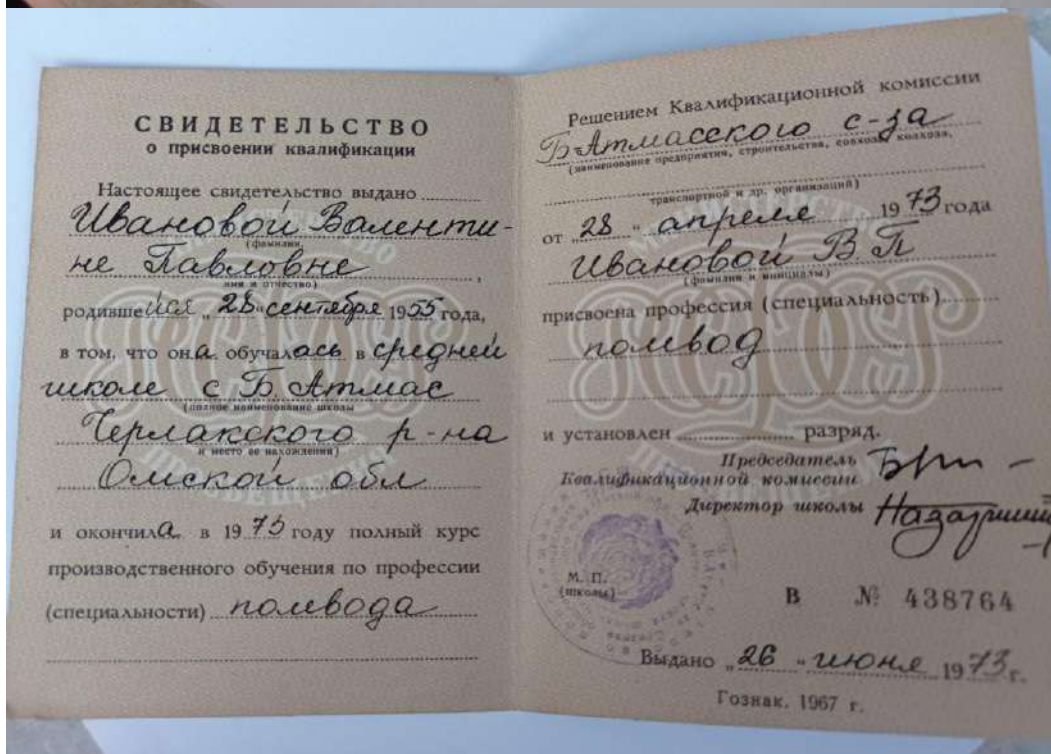 СВИДЕТЕЛЬСТВО
о присвоении квалификации
Настоящее свидетельство выдано
Ивановой Валенти-
(фамилия,
не Павловне,
имя и отчество)
родившейся „28" сентября 1955 года,
в том, что она обучалась в средней
школе с Б. Атмас
(полное наименование школы
Черлакского р-на
и место ее нахождения)
Омской обл
и окончила в 1973 году полный курс
производственного обучения по профессии
(специальности) полевода
Решением Квалификационной комиссии
Б-Атмасского с-за
(наименование предприятия, строительства, совхоза, колхоза,
транспортной и др. организаций)
от „28" апреля 1973 года
Ивановой В П
(фамилия и инициалы)
присвоена профессия (специальность)
полевод
и установлен разряд.
Председатель
Квалификационной комиссии
Директор школы
М. П.
(школы)
В № 438764
Выдано „26" июня 1973 г.
Гознак. 1967 г.